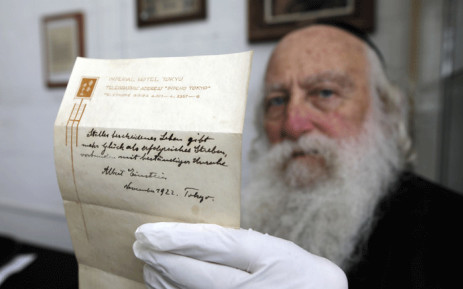 IMPERIAL HOTEL TOKYO
TELEGRAPHIC ADDRESS "IMPHO TOKYO"
TELEPHONE
Stilles bescheidenes Leben gibt
mehr Glück als erfolgreiches Streben,
verbunden mit beständiger Unruhe.
Albert Einstein
November 1922. Tokyo.